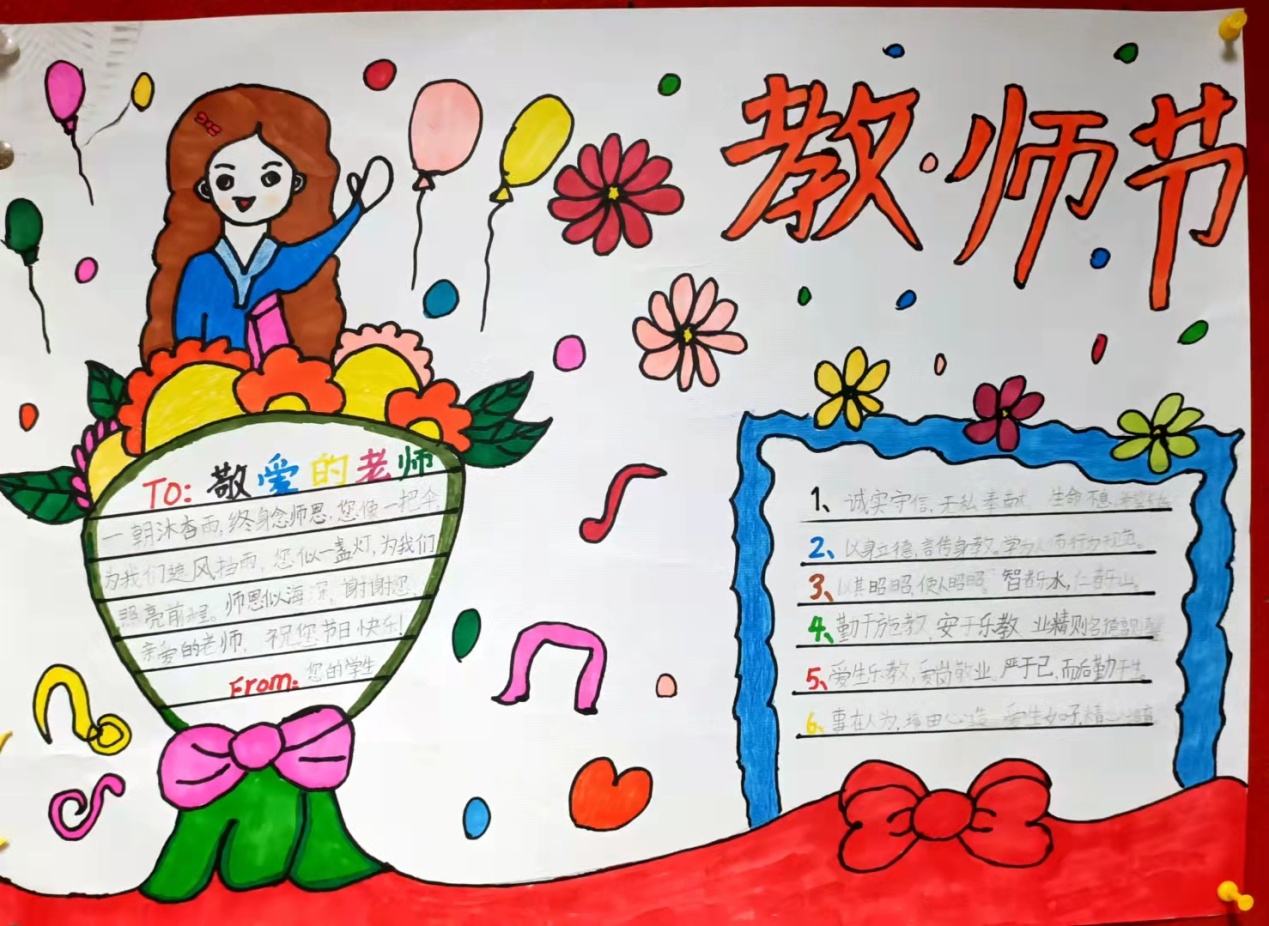 教师节
TO: 敬爱的老师
一朝沐杏雨,终身念师恩,您像一把伞,
为我们遮风挡雨,您似一盏灯,为我们
照亮前程。师恩似海深,谢谢您,
亲爱的老师,祝您节日快乐!
From: 您的学生
1、诚实守信,无私奉献 生命不息,
2、以身立德,言传身教,学为人师行为
3、以其昭昭,使人昭昭。智者乐水,仁者乐山。
4、勤于施教,安于乐教 业精则
5、爱生乐教,爱岗敬业 严于己,而后勤于生。
6、事在人为,境由心造